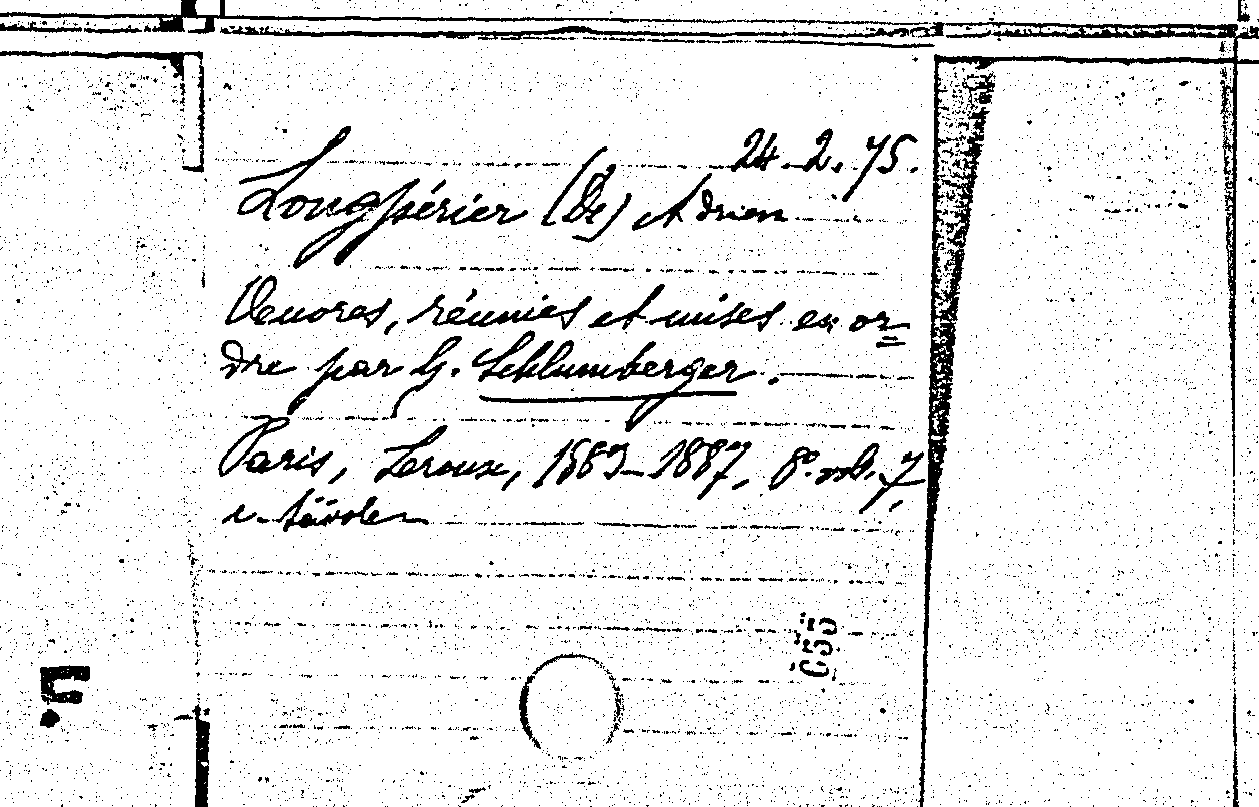 24.2.75.
Longpérier (De) Adrien
Oeuvres, réunies et mises en or=
dre par G. Schlumberger.
Paris, Leroux, 1883-1887, 8º. vol. 7,
c. tavole